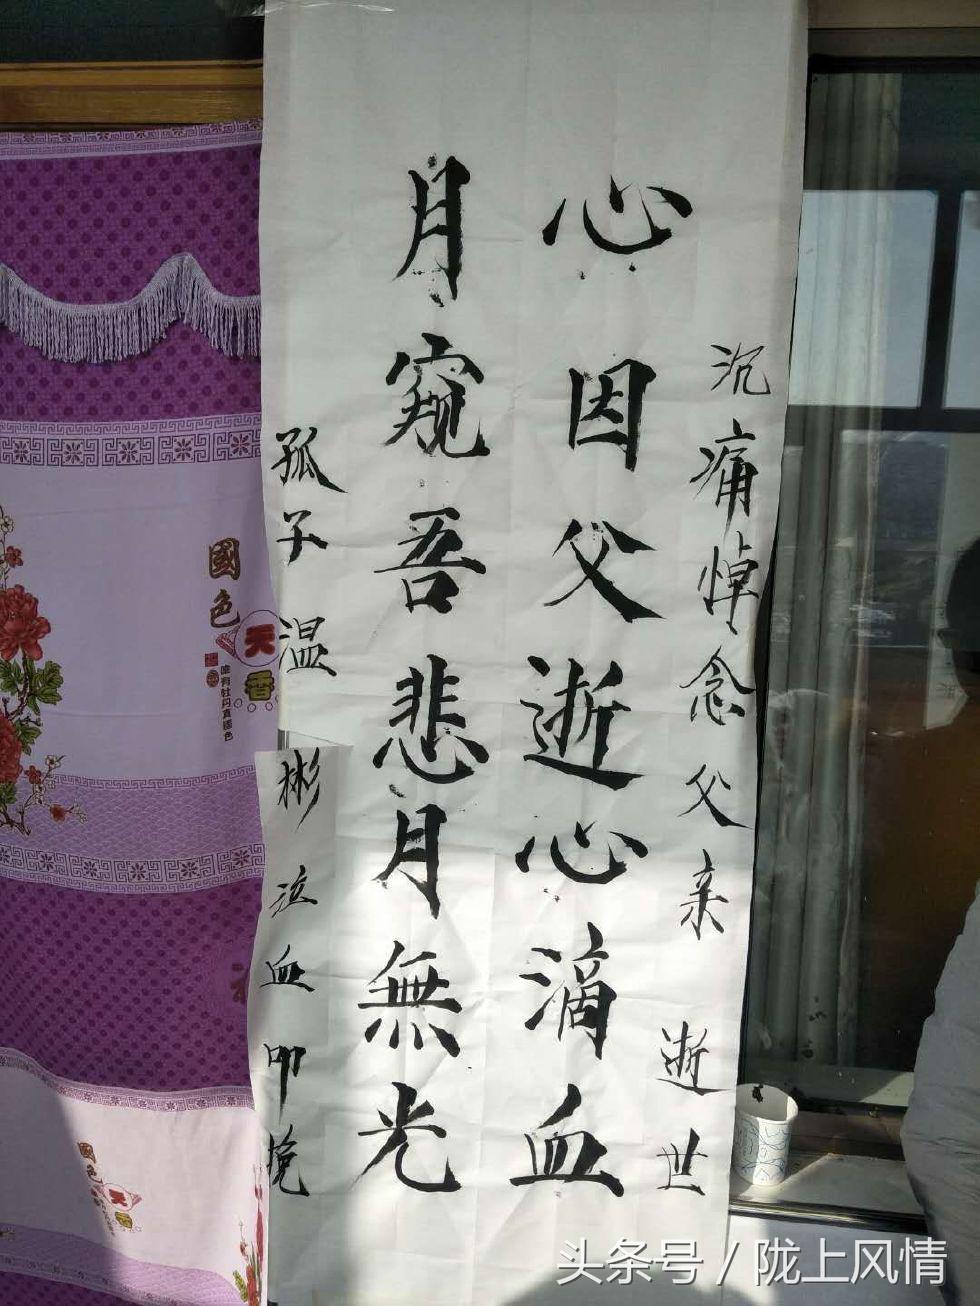 沉痛悼念父亲逝世
心因父逝心滴血
月窥吾悲月無光
孤子温彬泣血叩挽
國色
天香
唯有牡丹真國色
國色
天香
头条号 / 陇上风情